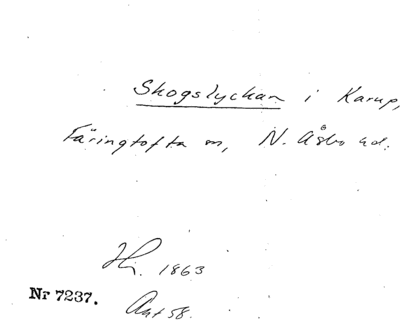 Skogslyckan i Karup,
Färingtofta sn, N. Åsbo hd.
Hi. 1863
Nr 7237.
Ant 58.